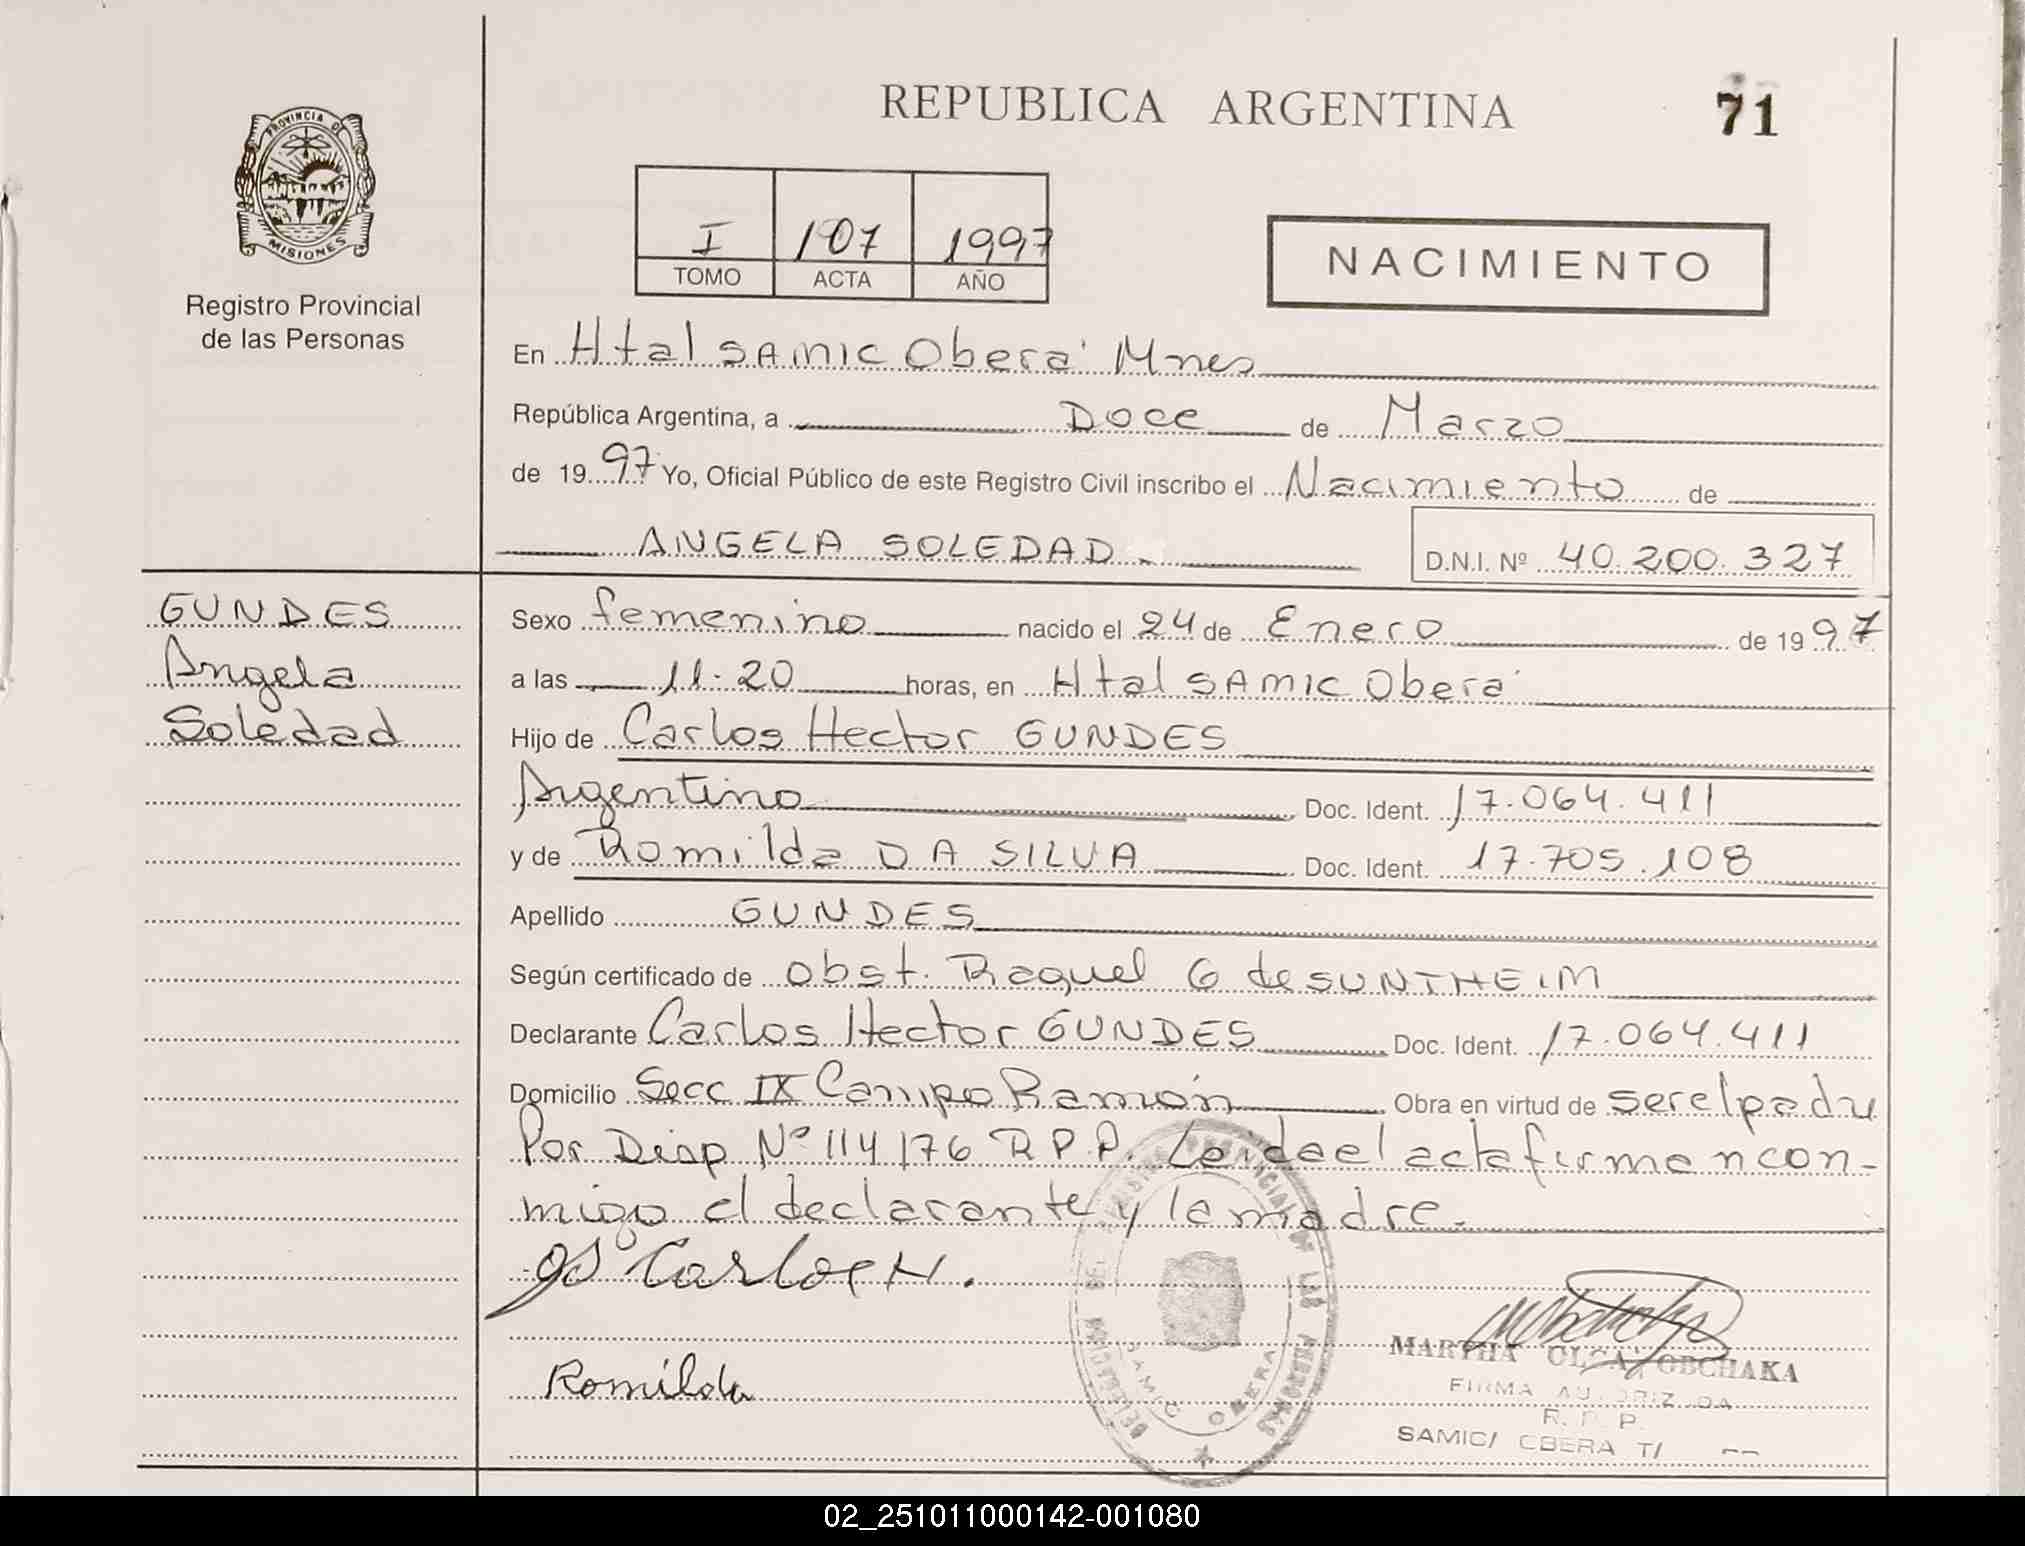 REPUBLICA ARGENTINA
71
PROVINCIA DE
MISIONES
Registro Provincial
de las Personas
I 107 1997
TOMO ACTA AÑO
NACIMIENTO
En Htal SAMIC Oberá Mnes
República Argentina, a Doce de Marzo
de 1997 Yo, Oficial Público de este Registro Civil inscribo el Nacimiento de
ANGELA SOLEDAD
D.N.I. Nº 40.200.327
GUNDES
Angela
Soledad
Sexo femenino nacido el 24 de Enero de 1997
a las 11.20 horas, en Htal SAMIC Oberá
Hijo de Carlos Hector GUNDES
Argentino Doc. Ident. 17.064.411
y de Romilda DA SILVA Doc. Ident. 17.705.108
Apellido GUNDES
Según certificado de obst. Raquel G de SUNTHEIM
Declarante Carlos Hector GUNDES Doc. Ident. 17.064.411
Domicilio Secc IX Campo Ramón Obra en virtud de ser el padre
Por Disp Nº 114/76 R.P.P. Leida el acta firman con-
migo el declarante y la madre.
Carlos H.
Romilda
MARTHA OLGA OBCHAKA
FIRMA AUTORIZADA
R. P. P.
SAMIC/ OBERA T/
SAMIC OBERA
02_251011000142-001080